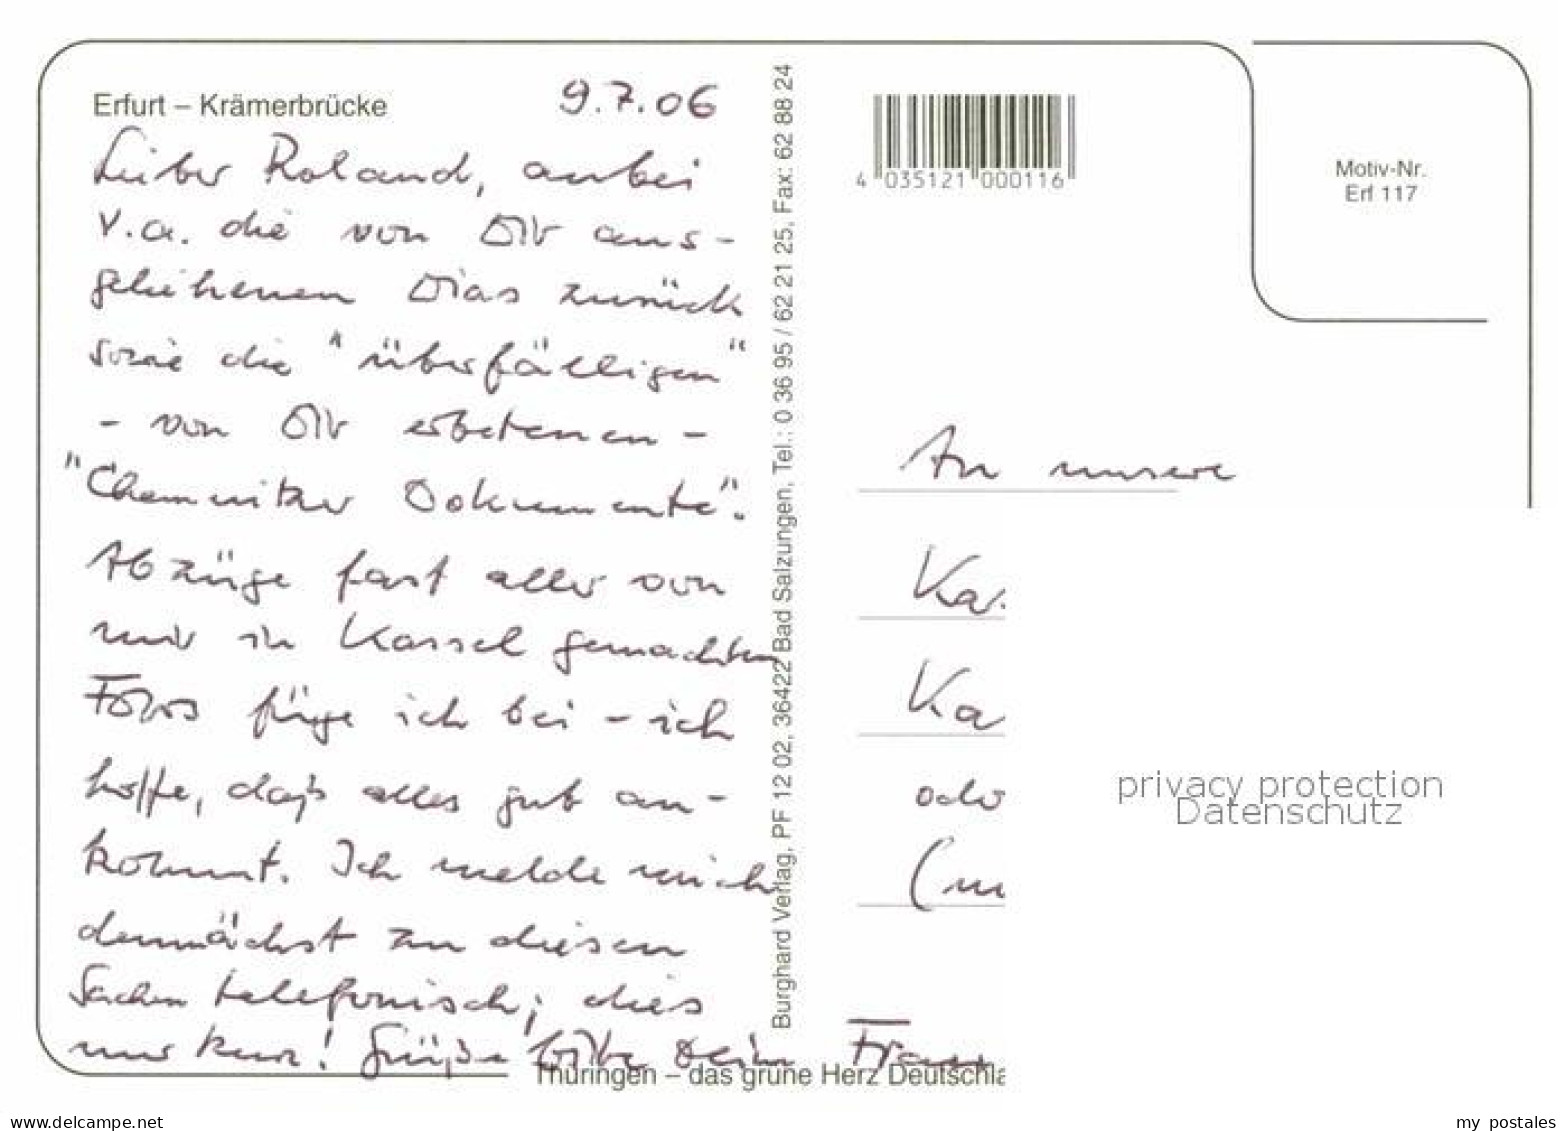 Erfurt – Krämerbrücke
9.7.06
Lieber Roland, anbei
v.a. die von Dir aus-
geliehenen Dias zurück
sowie die "überfälligen"
- von Dir erbetenen -
"Chemnitzer Dokumente".
Abzüge fast aller von
mir in Kassel gemachten
Fotos füge ich bei - ich
hoffe, daß alles gut an-
kommt. Ich melde mich
demnächst zu diesen
Sachen telefonisch; dies
nur kurz! Grüße bitte Deine Frau
Thüringen – das grüne Herz Deutschla
Burghard Verlag, PF 12 02, 36422 Bad Salzungen, Tel.: 0 36 95 / 62 21 25, Fax: 62 88 24
4 035121 000116
Motiv-Nr.
Erf 117
An unsere
Ka
Ka
oder
privacy protection
Datenschutz
www.delcampe.net
my_postales